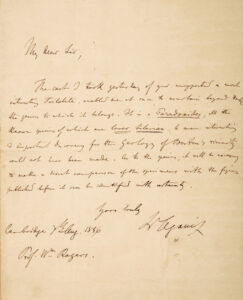 My Dear Sir,
The cast I took yesterday of your magnificent & most
interesting Trilobite, enabled me at once to ascertain beyond
the genus to which it belongs. It is a Paradoxides. All the
known species of which are lower Silurian. A more interesting
& important discovery for the Geology of Boston's vicinity
could not have been made. As to the species, it will be necessary
to make a direct comparison of the specimens with the figures
published before it can be identified with certainty.
Yours truly
L. Agassiz
Cambridge Aug. 1856
Prof. Wm Rogers.